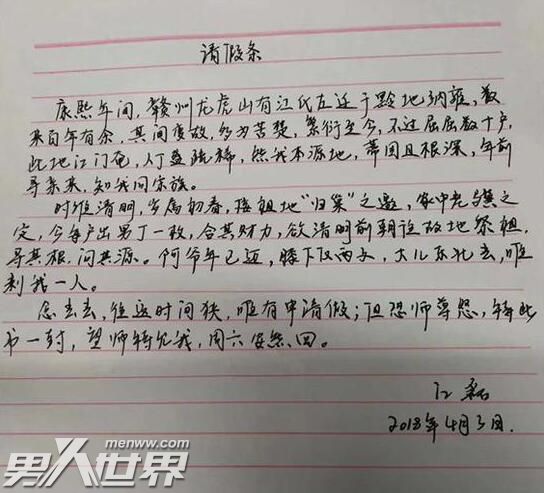 请假条
康熙年间，赣州龙虎山有江氏左迁于黔地纳雍，数
来百年有余，其间变故，多为苦楚，繁衍至今，不过屈屈数十户，
此地江门奄，人丁益疏稀，然我本源地，蒂固且根深，年前
寻亲来，知我同宗族。
时维清明，岁属初春，接祖地“归巢”之邀，家中老与冀之
定，今每户出男丁一枚，合其财力，欲清明前朝诣故地祭祖，
寻其根，问其源。何爷年已迈，膝下仅两子，大儿东北去，唯
剩我一人。
念去去，往返时间狭，唯有申请假；但恐师尊怒，特此
书一封，望师特允我，周六安然回。
江磊
2018年4月3日.
男人世界
menww.com